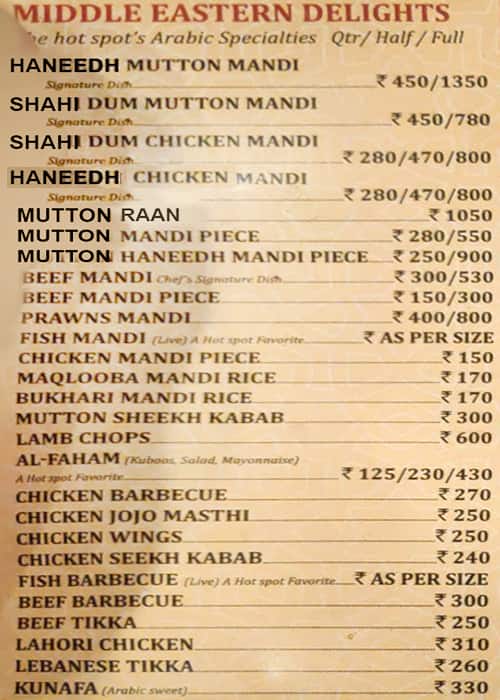 MIDDLE EASTERN DELIGHTS
he hot spot's Arabic Specialties Qtr/ Half / Full
HANEEDH MUTTON MANDI
Signature Dish ₹ 450/1350
SHAHI DUM MUTTON MANDI
Signature Dish ₹ 450/780
SHAHI DUM CHICKEN MANDI
Signature Dish ₹ 280/470/800
HANEEDH CHICKEN MANDI
Signature Dish ₹ 280/470/800
MUTTON RAAN ₹ 1050
MUTTON MANDI PIECE ₹ 280/550
MUTTON HANEEDH MANDI PIECE ₹ 250/900
BEEF MANDI Chef's Signature Dish ₹ 300/530
BEEF MANDI PIECE ₹ 150/300
PRAWNS MANDI ₹ 400/800
FISH MANDI (Live) A Hot spot Favorite ₹ AS PER SIZE
CHICKEN MANDI PIECE ₹ 150
MAQLOOBA MANDI RICE ₹ 170
BUKHARI MANDI RICE ₹ 170
MUTTON SHEEKH KABAB ₹ 300
LAMB CHOPS ₹ 600
AL-FAHAM (Kuboos, Salad, Mayonnaise)
A Hot spot Favorite ₹ 125/230/430
CHICKEN BARBECUE ₹ 270
CHICKEN JOJO MASTHI ₹ 250
CHICKEN WINGS ₹ 250
CHICKEN SEEKH KABAB ₹ 240
FISH BARBECUE (Live) A Hot spot Favorite ₹ AS PER SIZE
BEEF BARBECUE ₹ 300
BEEF TIKKA ₹ 250
LAHORI CHICKEN ₹ 310
LEBANESE TIKKA ₹ 260
KUNAFA (Arabic sweet) ₹ 330